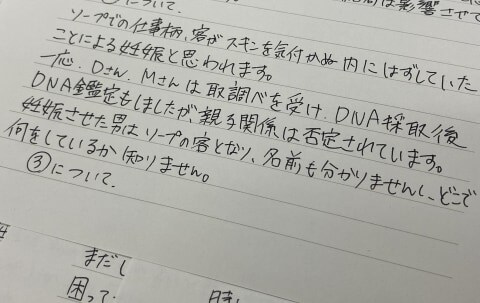 について.
は影響させて
ソープでの仕事柄、客がスキンを気付かぬ内にはずしていた
ことによる妊娠と思われます。
一応、Dさん、Mさんは取調べを受け、DNA採取後
DNA鑑定もしましたが親子関係は否定されています。
妊娠させた男はソープの客となり、名前も分かりませんし、どこで
何をしているか知りません。
③について.
まだし
困って